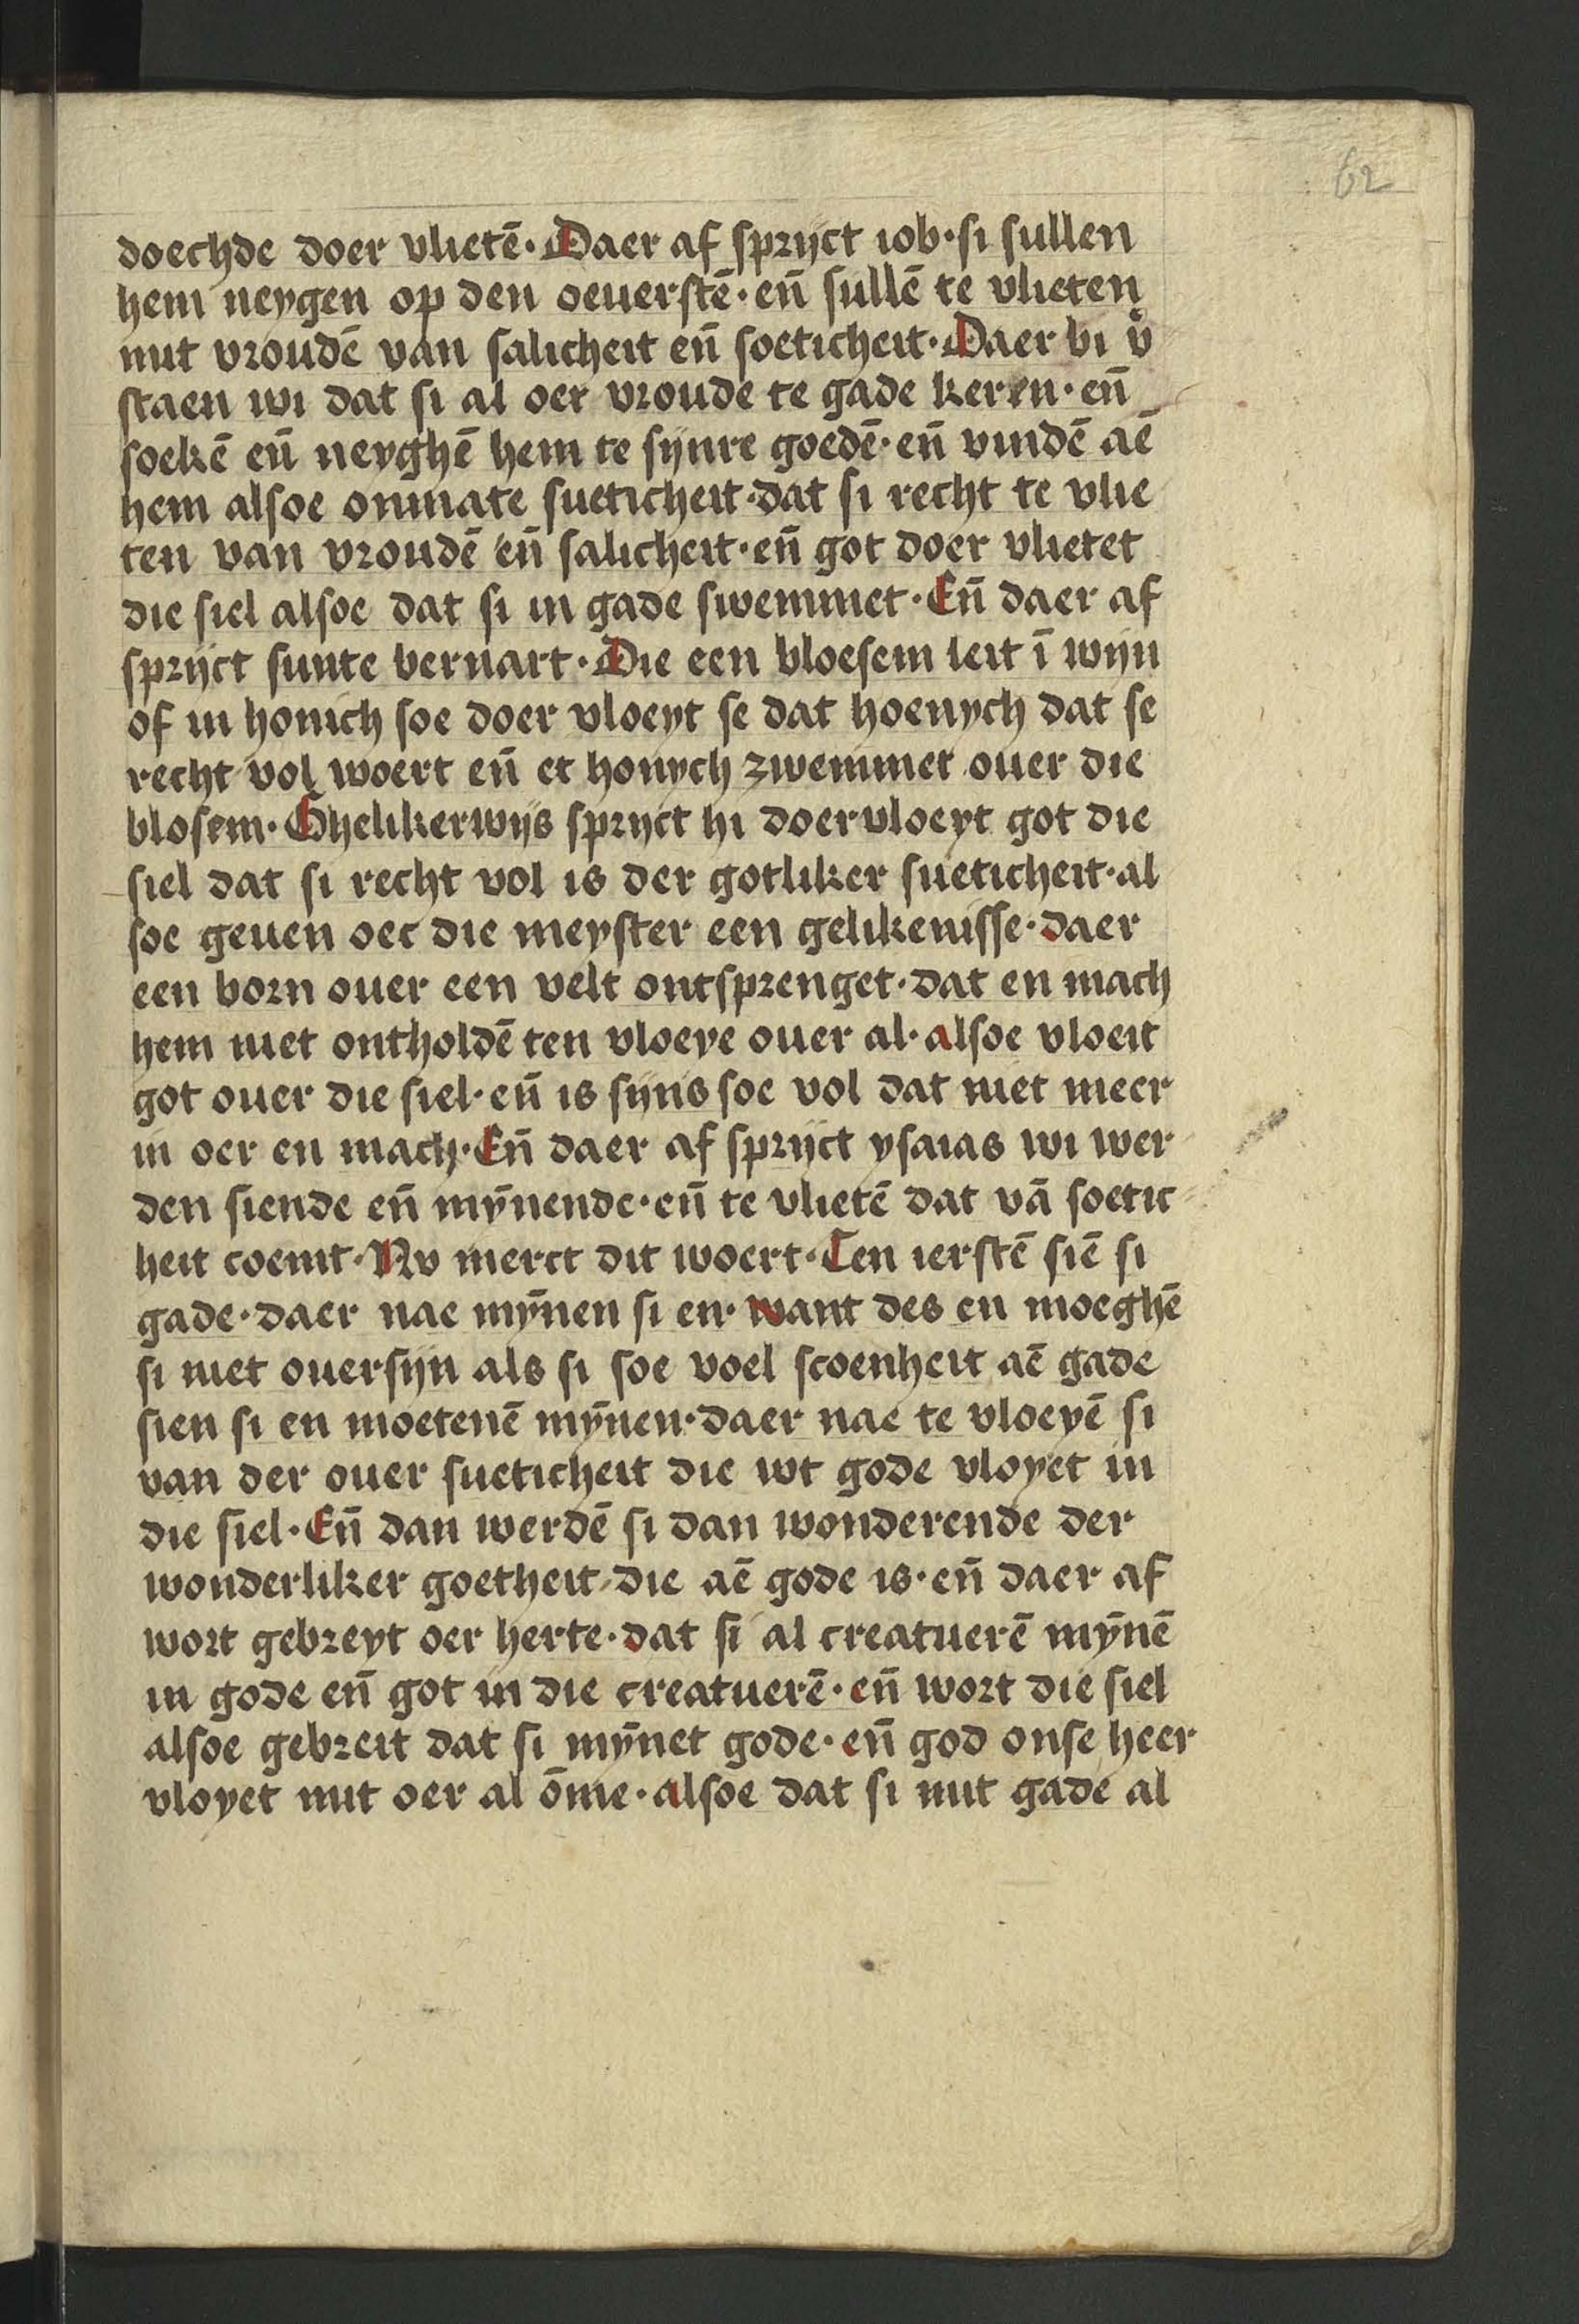 62
doechde doer vlietē· Daer af sprijct iob· si sullen
hem neygen op den oeuerstē· en̄ sullē te vlieten
mit vroudē van salicheit en̄ soeticheit· Daer bi v̾
staen wi dat si al oer vroude te gade keren· en̄
soekē en̄ neyghē hem te sijnre goedē· en̄ vindē aē
hem alsoe onmate sueticheit· dat si recht te vlie
ten van vroudē en̄ salicheit· en̄ got doer vlietet
die siel alsoe dat si in gade swemmet· En̄ daer af
sprijct sunte bernart· Die een bloesem leit ī wijn
of in honich soe doer vloeyt se dat hoenych dat se
recht vol woert en̄ et honych zwemmet ouer die
blosem· Ghelikerwijs sprijct hi doervloeyt got die
siel dat si recht vol is der gotliker sueticheit· al
soe geuen oec die meyster een gelikenisse· daer
een born ouer een velt ontsprenget· dat en mach
hem niet ontholdē ten vloeye ouer al· alsoe vloeit
got ouer die siel· en̄ is sijns soe vol dat niet meer
in oer en mach· En̄ daer af sprijct ysaias wi wer
den siende en̄ mȳnende· en̄ te vlietē dat vā soetic
heit coemt· Nv merct dit woert· Ten ierstē siē si
gade· daer nae mȳnen si en· want des en moeghē
si niet ouersijn als si soe voel scoenheit aē gade
sien si en moetenē mȳnen· daer nae te vloeyē si
van der ouer sueticheit die wt gode vloyet in
die siel· En̄ dan werdē si dan wonderende der
wonderliker goetheit· die aē gode is· en̄ daer af
wort gebreyt oer herte· dat si al creatuerē mȳnē
in gode en̄ got in die creatuerē· en̄ wort die siel
alsoe gebreit dat si mȳnet gode· en̄ god onse heer
vloyet mit oer al ōme· alsoe dat si mit gade al